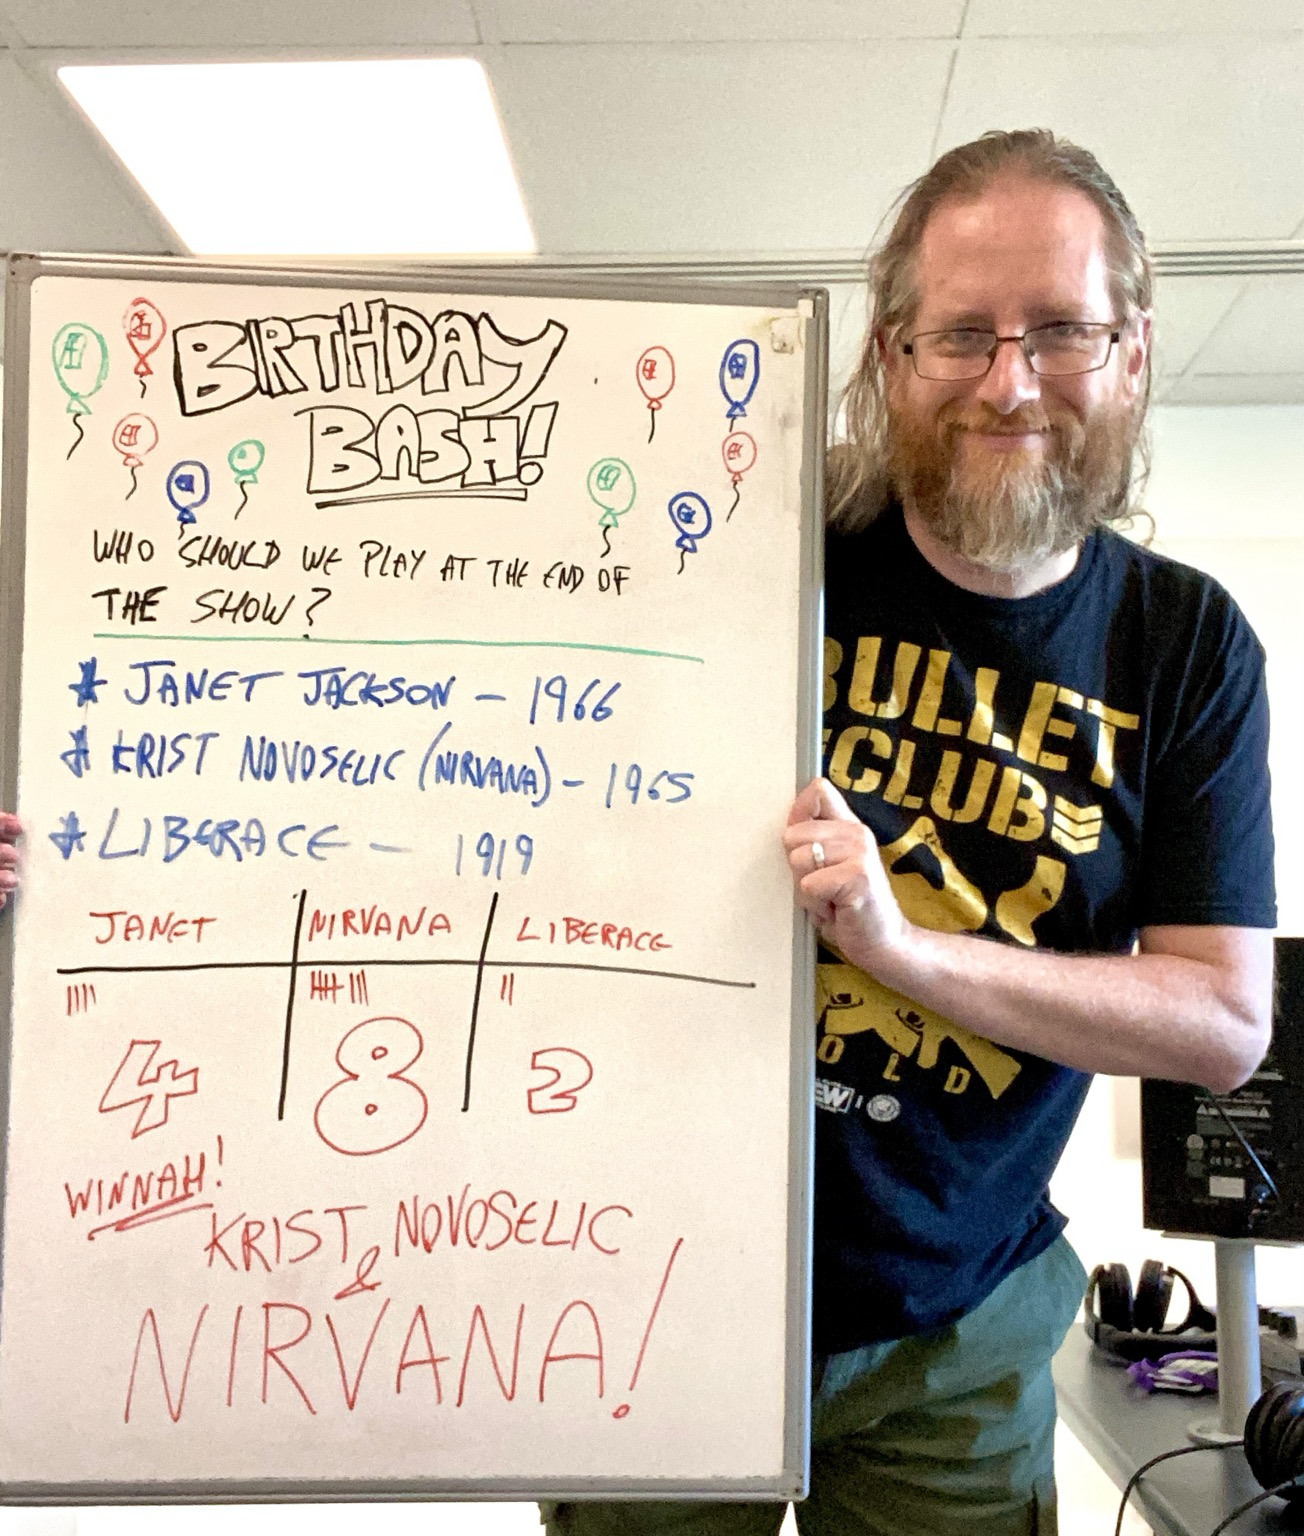 BIRTHDAY
BASH!
WHO SHOULD WE PLAY AT THE END OF
THE SHOW?
* JANET JACKSON – 1966
* KRIST NOVOSELIC (NIRVANA) – 1965
* LIBERACE – 1919
JANET NIRVANA LIBERACE
4 8 2
WINNAH!
KRIST NOVOSELIC
&
NIRVANA!
BULLET
CLUB
OLD